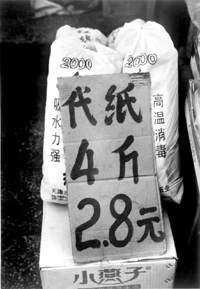 2000
2000
吸水力强
高温消毒
代纸
4斤
2.8元
小燕子